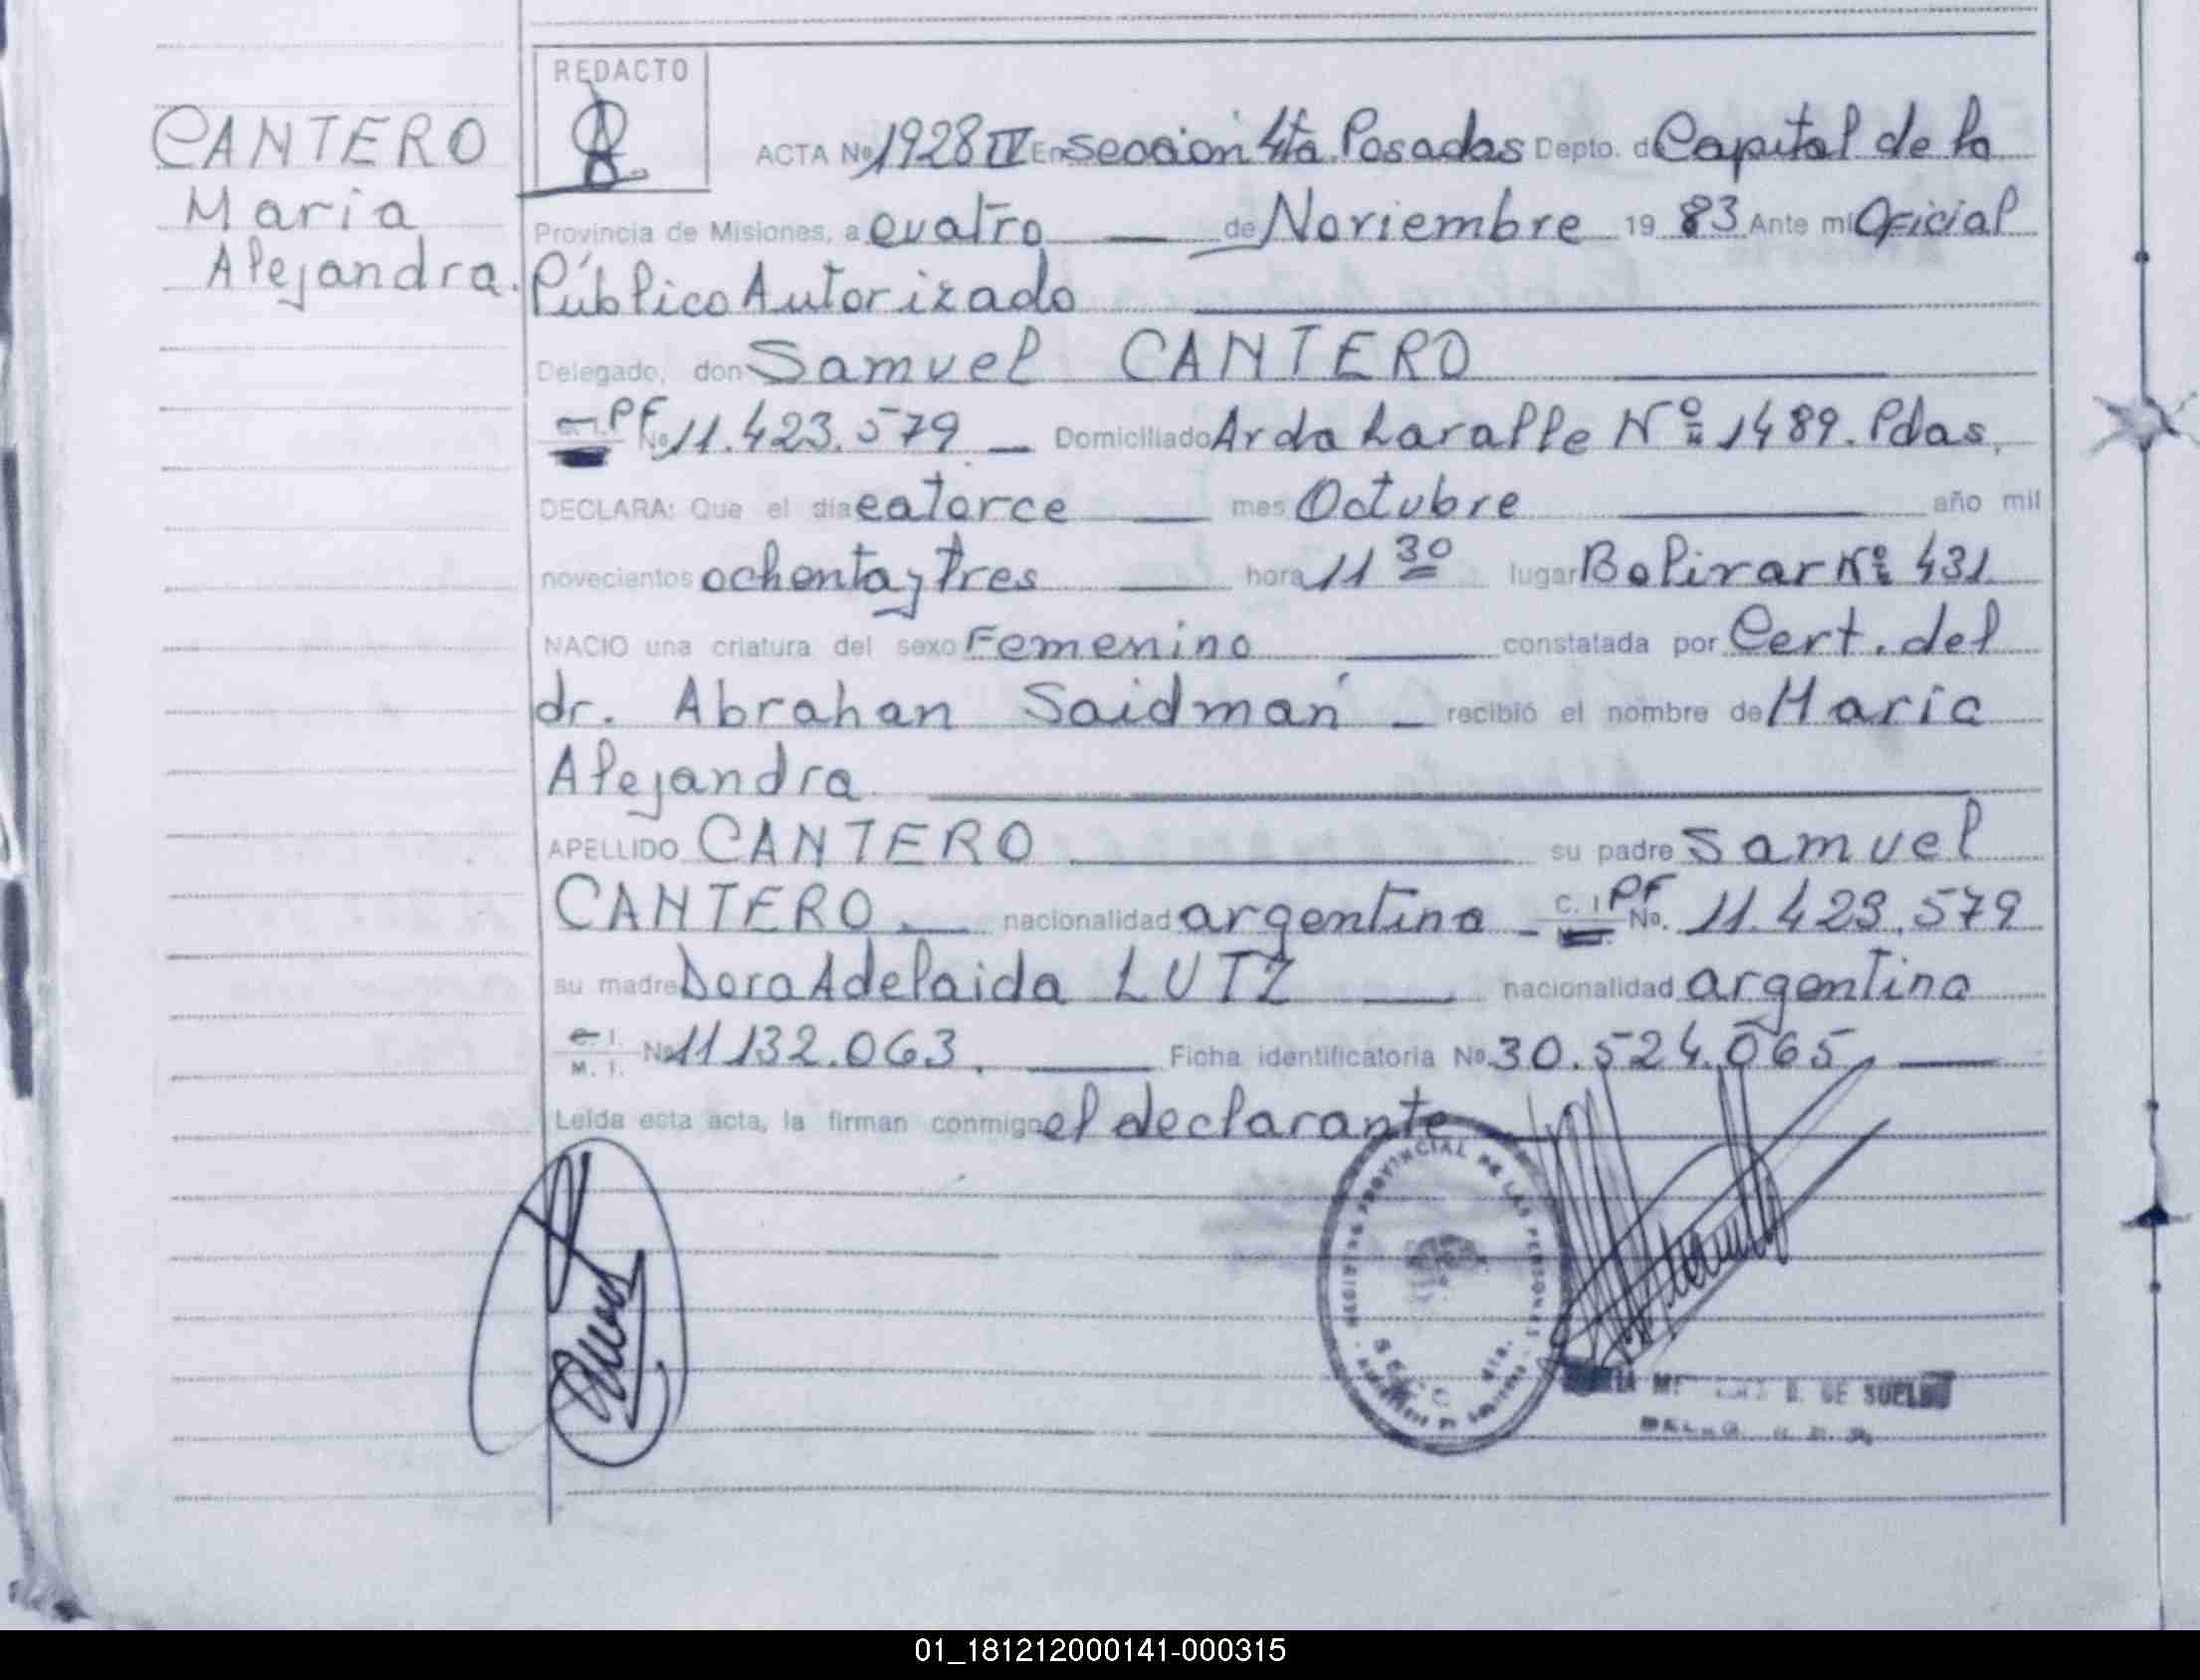 CANTERO
Maria
Alejandra.
REDACTO
ACTA Nº 1928 IV En sección 4ta. Posadas Depto. d Capital de la
Provincia de Misiones, a cuatro — de Noviembre 19 83 Ante mi Oficial
Público Autorizado
Delegado, don Samuel CANTERO
C. I. PF Nº 11.423.579 — Domiciliado Avda Lavalle Nº 1489. Pdas.
DECLARA: Que el día catorce — mes Octubre — año mil
novecientos ochenta y tres — hora 11 30 lugar Bolivar Nº 431
NACIO una criatura del sexo Femenino — constatada por Cert. del
dr. Abrahan Saidman — recibió el nombre de Maria
Alejandra
APELLIDO CANTERO — su padre Samuel
CANTERO — nacionalidad argentina — C. I. PF No. 11.423.579
su madre Dora Adelaida LUTZ — nacionalidad argentina
C. I. M. I. Nº 11.132.063. — Ficha identificatoria Nº 30.524.065 —
Leída esta acta, la firman conmigo el declarante
REGISTRO PROVINCIAL DE LAS PERSONAS
SECC. 4ta.
D. DE SUELDO
01_181212000141-000315